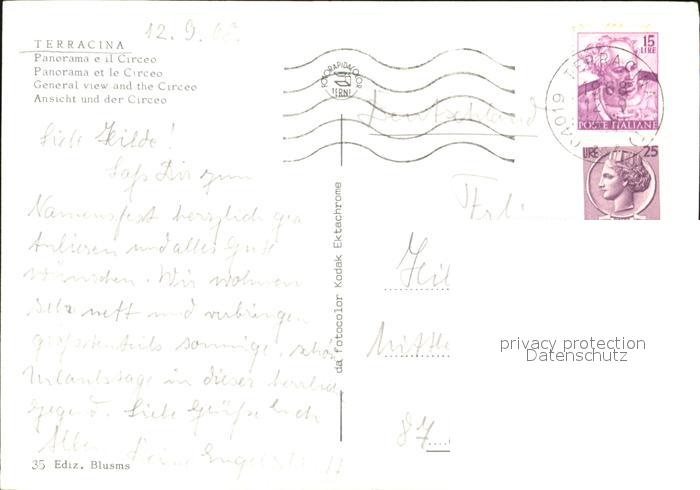 12.9.68.
TERRACINA
Panorama e il Circeo
Panorama et le Circeo
General view and the Circeo
Ansicht und der Circeo
Liebe Hilde!
Lass Dir zum
Namensfest herzlich gra
tulieren und alles Gute
wünschen. Wir wohnen
sehr nett und verbringen
größtenteils sonnige, schöne
Urlaubstage in dieser herrlichen
Gegend. Liebe Grüße Euch
Allen
35 Ediz. Blusms
da fotocolor Kodak Ektachrome
FOTORAPIDACOLOR
TERNI
15
LIRE
POSTE ITALIANE
04019 TERRACINA
LIRE 25
Deutschland
Frl.
Hil
Mittle
87
privacy protection
Datenschutz